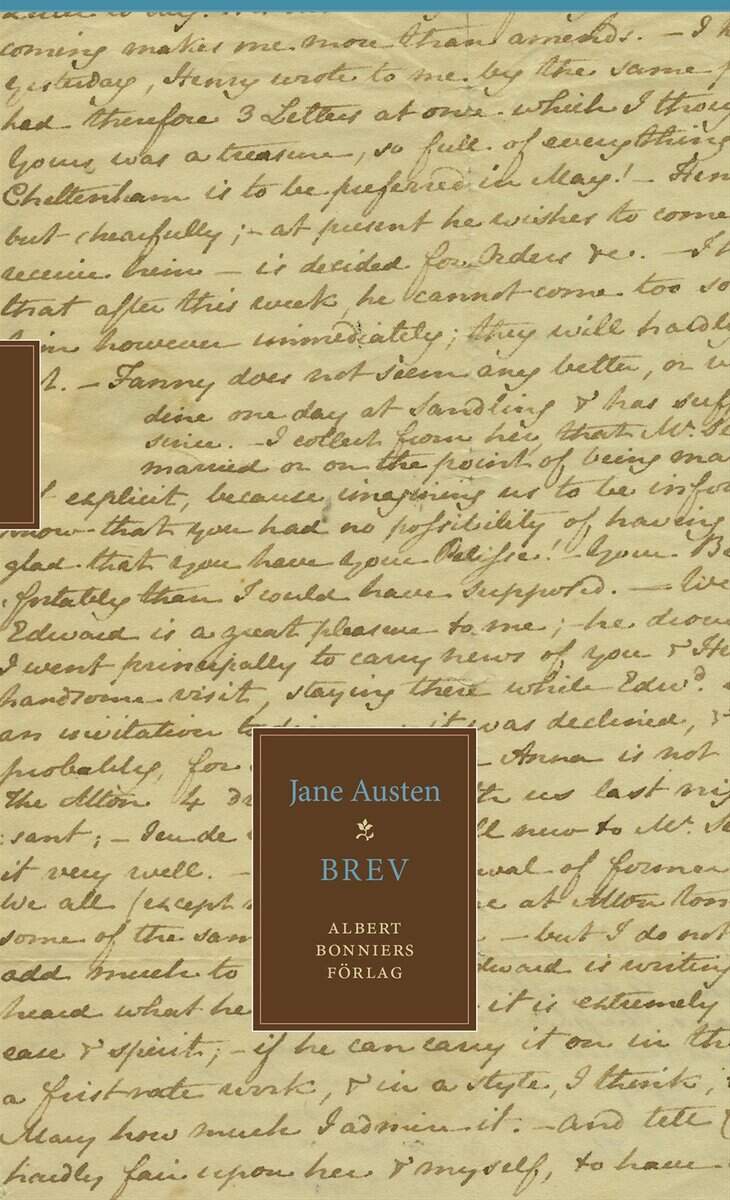 coming makes me more than amends. — I h
Yesterday, Henry wrote to me by the same p
had therefore 3 Letters at once which I thoug
Yours was a treasure, so full of everything
Cheltenham is to be preferred in May! — Hen
but chearfully; — at present he wishes to come
receive him — is decided for Orders &c. — I h
that after this week, he cannot come too so
him however immediately; they will hardly
t. — Fanny does not seem any better, or
dine one day at Sandling & has suff
since. — I collect from her, that Mr. Se
married or on the point of being ma
explicit, because imagining us to be infor
know that you had no possibility of having
glad that you have your Pelisse! — Your B
fortably than I could have supposed. — 
Edward is a great pleasure to me; — he drov
I went principally to carry news of you & He
handsome visit, staying there while Edwd.
an invitation to it was declined, &
probably, for — Anna is not
the Alton 4 us last nig
sant; — ll new to Mr. Se
it very well. — wal of former
We all (except at Alton
some of the sam — but I do not
add much to dward is writing
heard what he it is extremely
ease & spirit; — if he can carry it on in the
a first rate work, & in a style, I think,
Mary how much I admire it. — And tell
hardly fair upon her & myself, to have
Jane Austen
BREV
ALBERT
BONNIERS
FÖRLAG